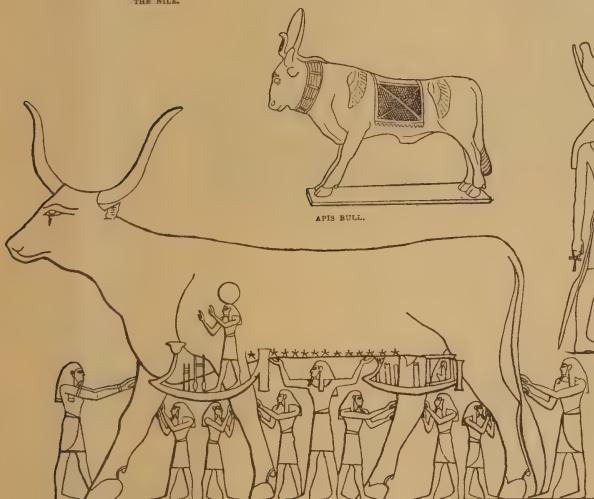 THE NILE.
APIS BULL.